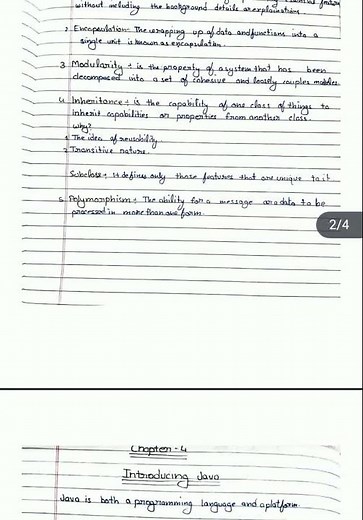 without including the background details or explanations.
2. Encapsulation - The wrapping up of data and functions into a
single unit is known as encapsulation.
3. Modularity : is the property of a system that has been
decomposed into a set of cohesive and loosely couples modules.
4. Inheritance : is the capability of one class of things to
inherit capabilities or properties from another class.
Why?
1. The idea of reusability
2. Transitive nature.
Subclass : It defines only those features that are unique to it
5. Polymorphism : The ability for a message or data to be
processed in more than one form.
2/4
Chapter - 4
Introducing Java
Java is both a programming language and a platform